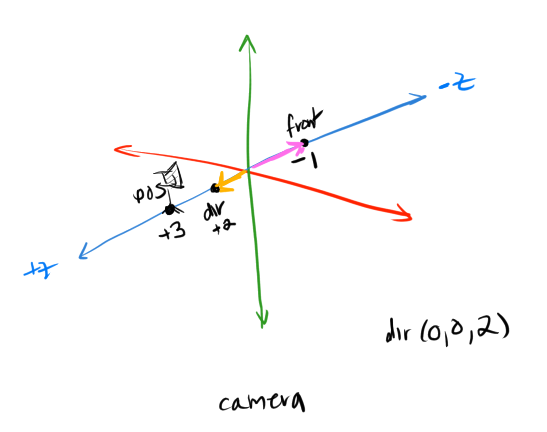 -z
front
-1
pos
dir
+2
+3
+z
dir (0,0,2)
camera